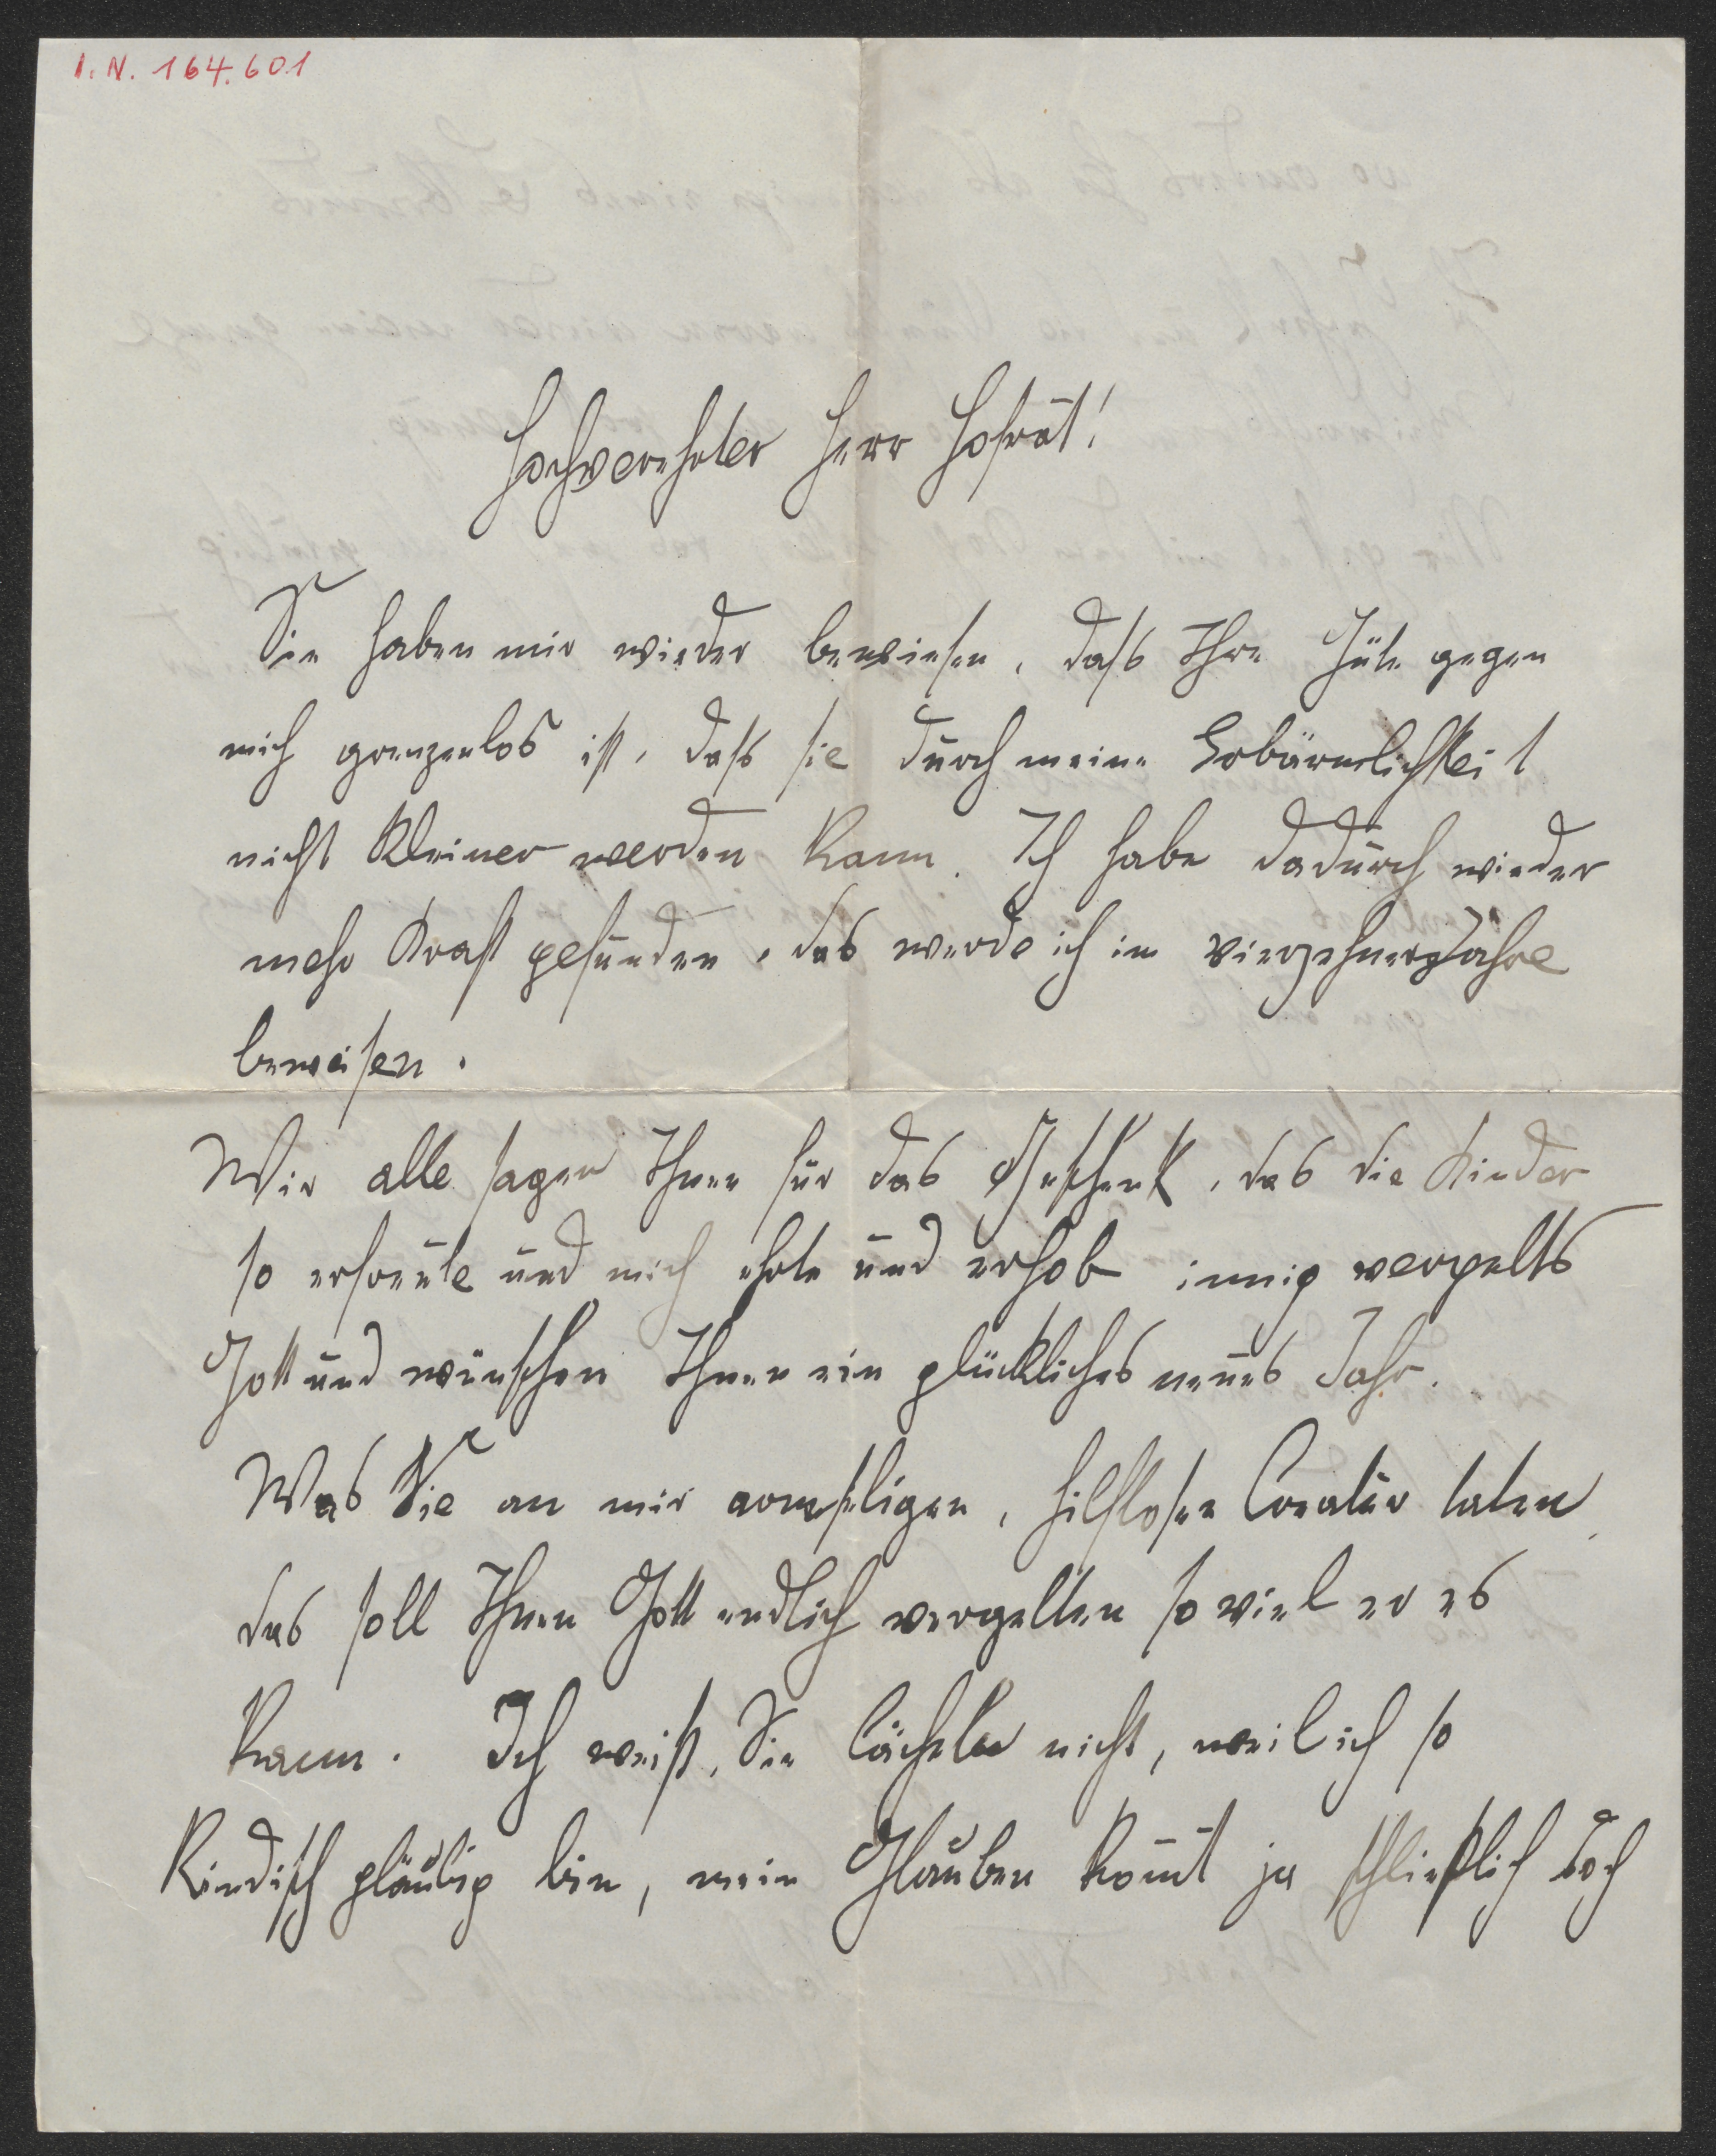 I. N. 164.601
Hochverehrter Herr Hofrat!
Sie haben mir wieder bewiesen, dass Ihre Güte gegen
mich grenzenlos ist, dass sie durch meine Erbärmlichkeit
nicht kleiner werden kann. Ich habe dadurch wieder
mehr Kraft gefunden, das werde ich im vierzehnerjahre
beweisen.
Wir alle sagen Ihnen für das Geschenk, das die Kinder
so erfreute und mich ehrte und erhob innig vergelts
Gott und wünschen Ihnen ein glückliches neues Jahr.
Was Sie an mir armseligen, hilflosen Creatur taten
das soll Ihnen Gott endlich vergelten so viel er es
kann. Ich weiß, Sie lächeln nicht, weil ich so
kindisch gläubig bin, mein Glauben kom̅t ja schließlich doch